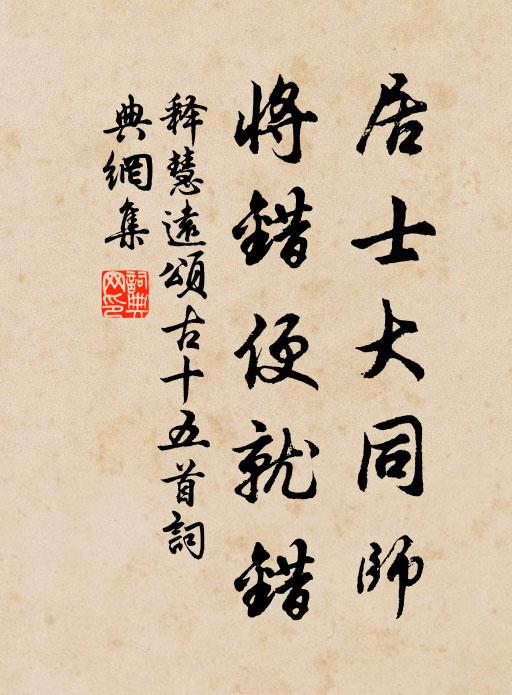 居士大同師
將錯便就錯
释慧遠頌古十五首詞
典網集
詞典网印